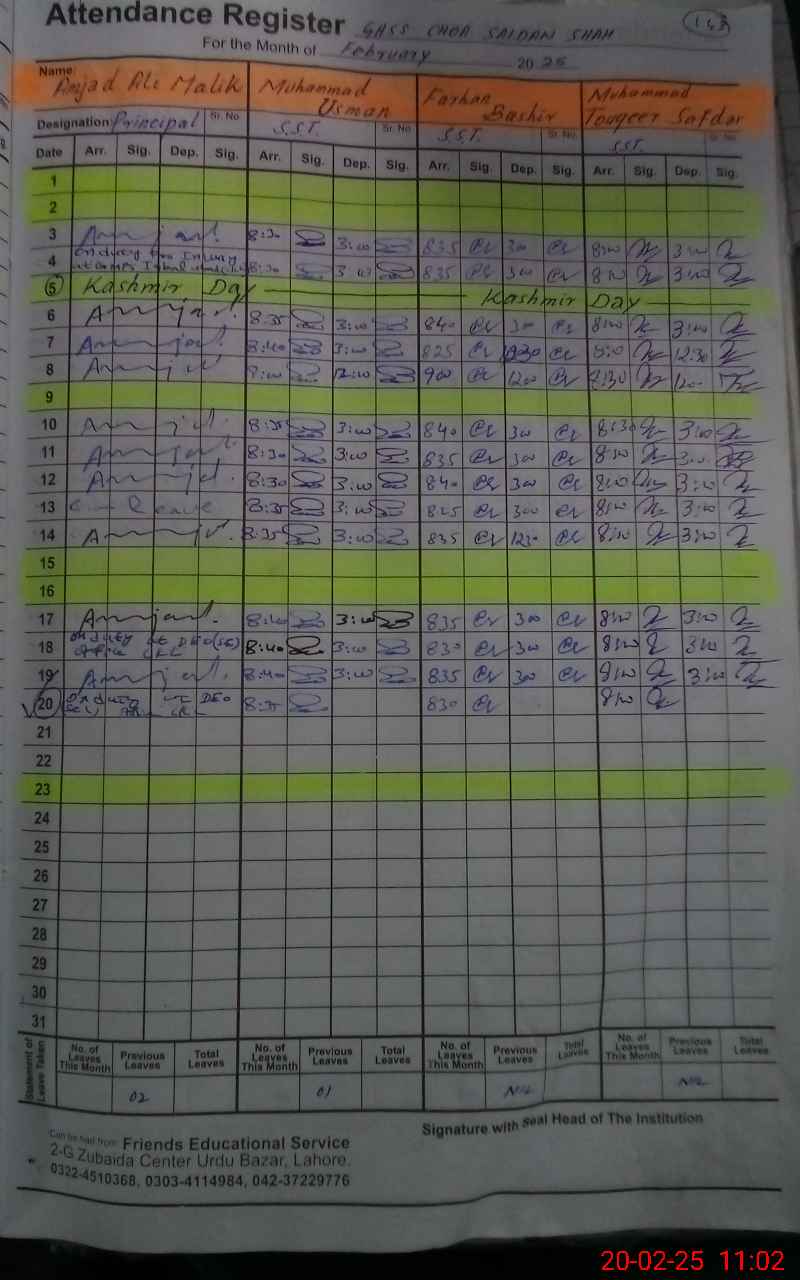 Attendance Register GHSS CHOA SAIDAN SHAH
For the Month of February 2025
Name: Amjad Ali Malik Muhammad Usman Farhan Bashir Muhammad Touqeer Safdar
Designation: Principal Sr. No S.S.T. Sr. No S.S.T. Sr. No SST. Sr. No
Date Arr. Sig. Dep. Sig. Arr. Sig. Dep. Sig. Arr. Sig. Dep. Sig. Arr. Sig. Dep. Sig.
1
2
3 8:30 3:00 835 300 8:00 3:00
4 on duty 8:30 3:00 835 300 8:00 3:00
5 Kashmir Day Kashmir Day
6 8:35 3:00 840 300 8:00 3:00
7 8:40 3:00 825 1230 8:00 12:30
8 9:00 12:00 900 1200 8:30
9
10 8:35 3:00 840 300 8:30 3:00
11 8:30 3:00 835 300 8:00 3:00
12 8:30 3:00 840 300 8:00 3:00
13 Leave 8:35 3:00 825 300 8:00 3:00
14 8:35 3:00 835 1230 8:00 3:00
15
16
17 8:40 3:00 835 300 8:00 3:00
18 on duty at DEO(SE) office CKL 8:40 3:00 830 300 8:00 3:00
19 8:40 3:00 835 300 8:00 3:00
20 on duty at DEO CKL 8:35 830 8:00
21
22
23
24
25
26
27
28
29
30
31
Statement of Leave Taken No. of Leaves This Month Previous Leaves Total Leaves No. of Leaves This Month Previous Leaves Total Leaves No. of Leaves This Month Previous Leaves Total Leaves No. of Leaves This Month Previous Leaves Total Leaves
02 01 NIL NIL
Signature with seal Head of The Institution
Can be had from: Friends Educational Service
2-G Zubaida Center Urdu Bazar, Lahore.
0322-4510368, 0303-4114984, 042-37229776
20-02-25 11:02